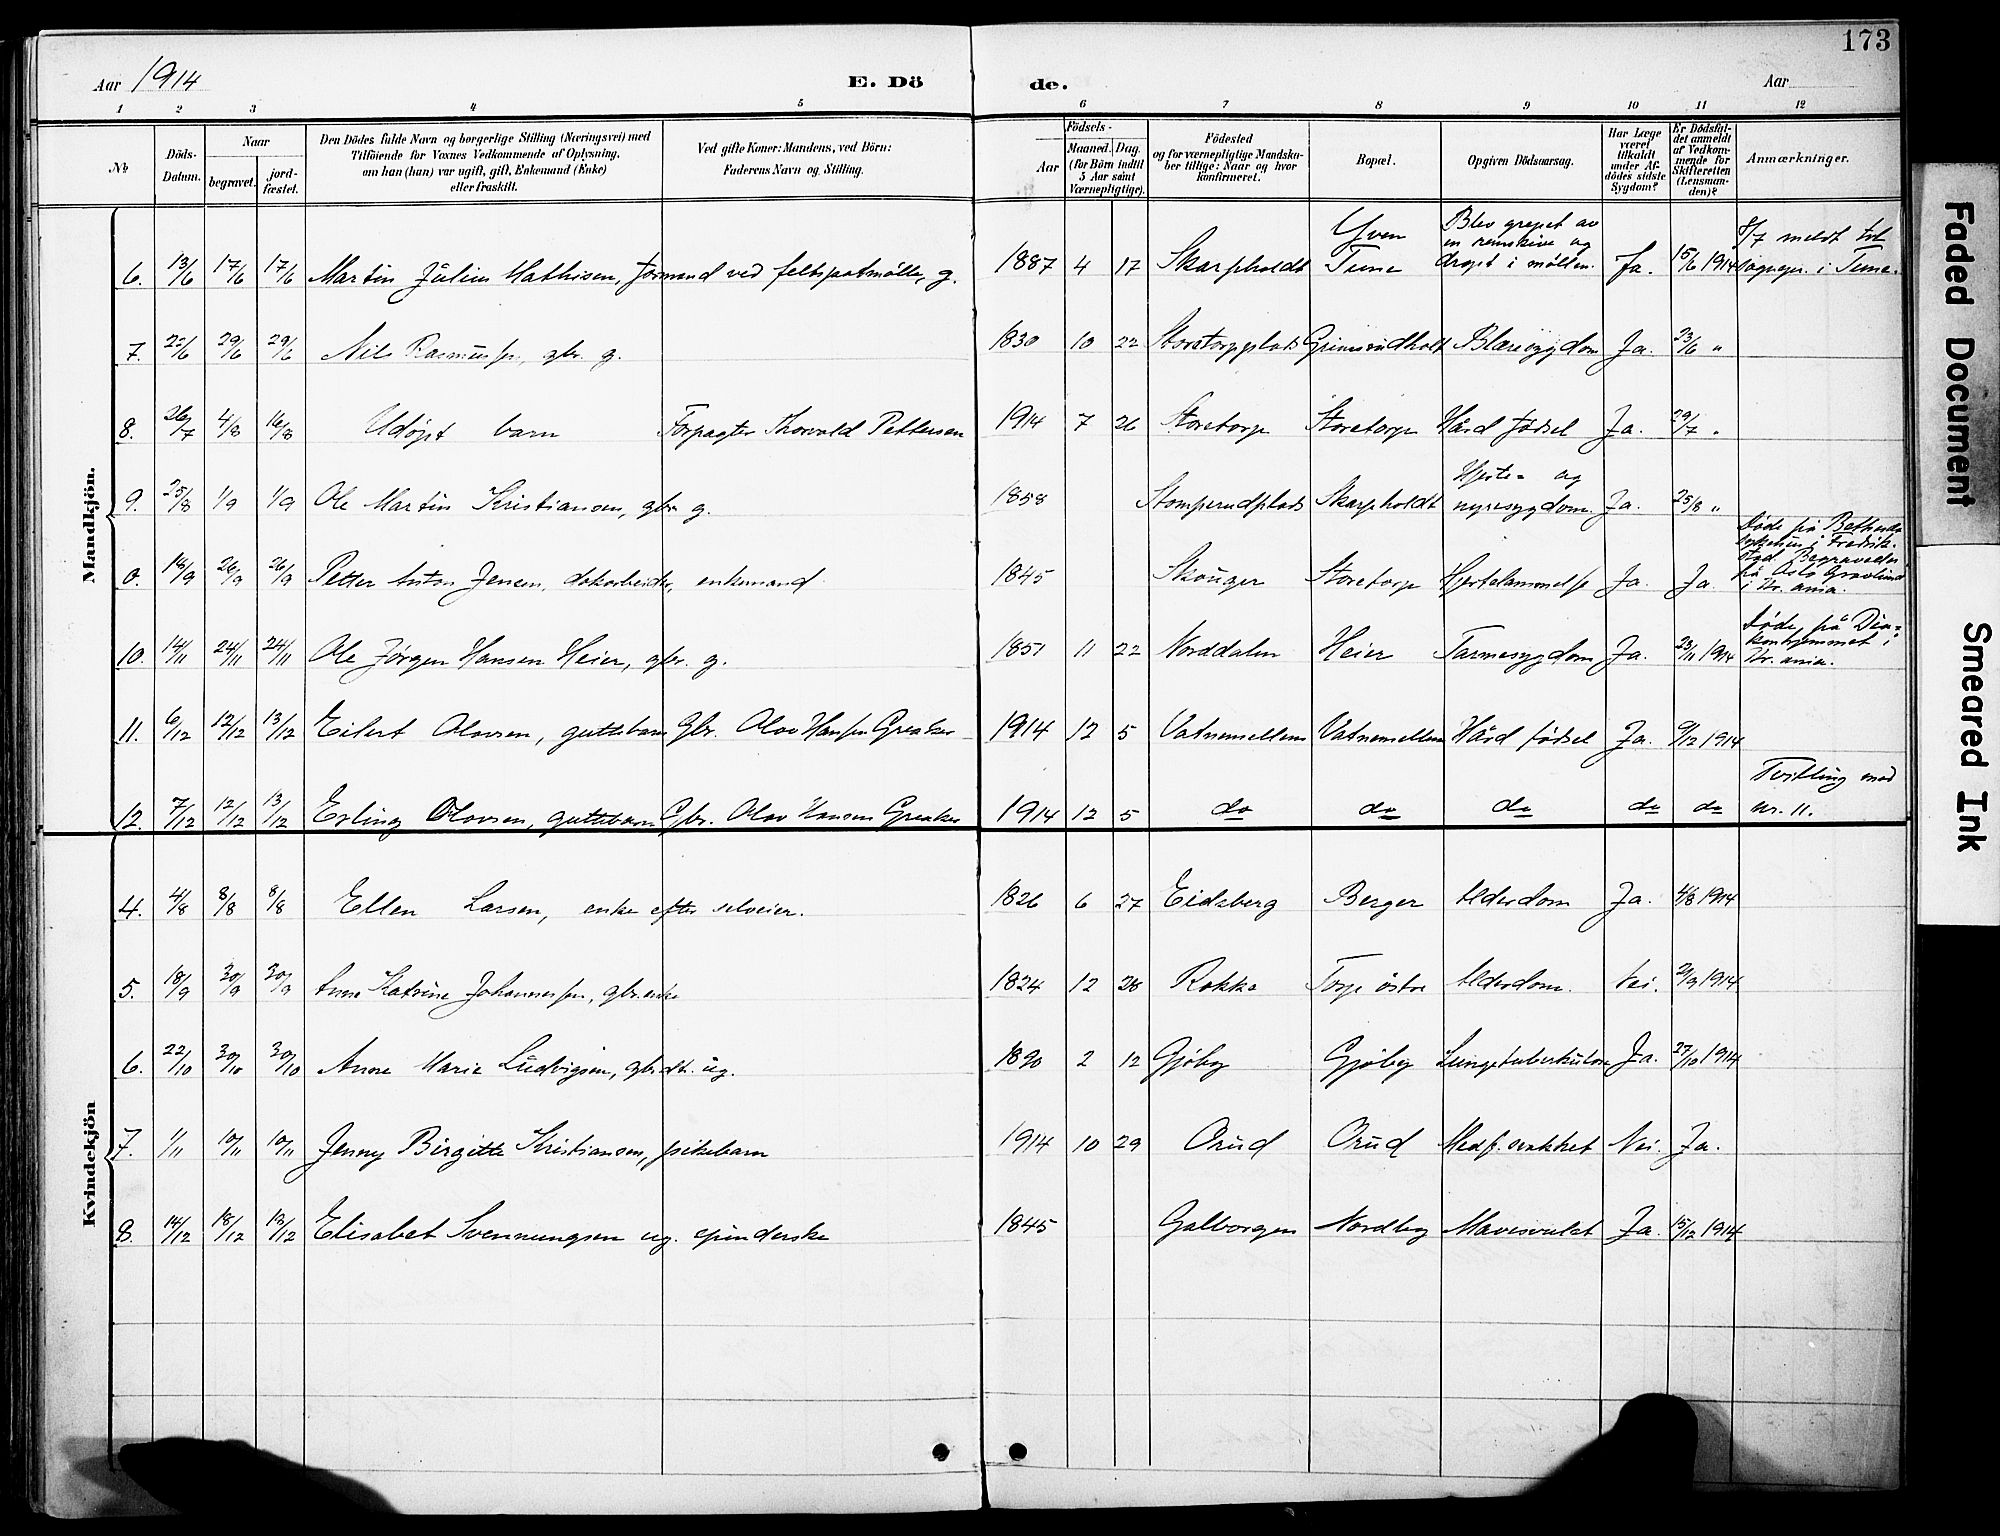 173
Aar 1914
E. Döde.
Aar
1 2 3 4 5 6 7 8 9 10 11 12
No
Döds-Datum.
Naar
begravet.
jordfæstet.
Den Dödes fulde Navn og borgerlige Stilling (Næringsvei) med
Tilföiende for Voxnes Vedkommende af Oplysning,
om han (hun) var ugift, gift, Enkemand (Enke)
eller fraskilt.
Ved gifte Koner: Mandens, ved Börn:
Faderens Navn og Stilling.
Födsels-
Aar
Maaned. Dag.
(for Börn indtil
5 Aar samt
Værnepligtige).
Födested
og for værnepligtige Mandskaber tillige: Naar og hvor
konfirmeret.
Bopæl.
Opgiven Dödsaarsag.
Har Læge
været
tilkaldt
under Afdödes sidste
Sygdom?
Er Dödsfaldet anmeldt
af Vedkommende for
Skifteretten
(Lensmanden)?
Anmærkninger.
Mandkjön.
6. 13/6 17/6 17/6 Martin Julius Mathisen, formand ved feltspatmølle, g. 1887 4 17 Skarpholdt Yven Tune Blev grepet av en remskive og dræpt i møllen. Ja. 15/6 1914 8/7 meldt til sognepr. i Tune.
7. 22/6 29/6 29/6 Nils Rasmussen, gbr. g. 1830 10 22 Storetorpplads Grimsrudholt Blæresygdom Ja. 23/6 "
8. 26/7 4/8 16/8 Udøpt barn Forpagter Thorvald Pettersen 1914 7 26 Storetorp Storetorp Hård fødsel Ja. 29/7 "
9. 25/8 1/9 1/9 Ole Martin Kristiansen, gbr. g. 1858 Stomperudplads Skarpholdt Hjerte- og nyresygdom. Ja. 25/8 "
0. 18/9 26/9 26/9 Petter Anton Jensen, dokarbeider, enkemand 1845 Skouger Storetorp Hjertelammelse Ja. Ja. Døde på Bethesda sykehus i Fredrikstad. Begravedes på Oslo Gravlund i Kr.ania.
10. 14/11 24/11 24/11 Ole Jörgen Hansen Heier, gbr. g. 1851 11 22 Norddalen Heier Tarmesygdom Ja. 23/11 1914 Døde på Diakonhjemmet i Kr.ania.
11. 6/12 12/12 13/12 Eilert Olavsen, guttebarn Gbr. Olav Hansen Greaker 1914 12 5 Vatnemellem Vatnemellem Hård fødsel Ja. 9/12 1914
12. 7/12 12/12 13/12 Erling Olavsen, guttebarn Gbr. Olav Hansen Greaker 1914 12 5 do do do do do Tvilling med nr. 11.
Kvindekjön
4. 4/8 8/8 8/8 Ellen Larsen, enke efter selveier. 1826 6 27 Eidsberg Berger Alderdom Ja. 4/8 1914
5. 18/9 30/9 30/9 Anne Katrine Johannessen, gbr.enke 1824 12 28 Rokke Torp östre Alderdom. Nei. 21/9 1914
6. 22/10 30/10 30/10 Anne Marie Ludvigsen, gbr.dtr. ug. 1890 2 12 Gjöby Gjöby Lungetuberkulose Ja. 27/10 1914
7. 1/11 10/11 10/11 Jenny Birgitte Kristiansen, pikebarn 1914 10 29 Orud Orud Medf. svakhet Nei. Ja.
8. 14/12 18/12 19/12 Elisabet Svennungsen ug. spinderske 1845 Galborgen Nordby Mavesvulst Ja. 15/12 1914
Faded Document
Smeared Ink